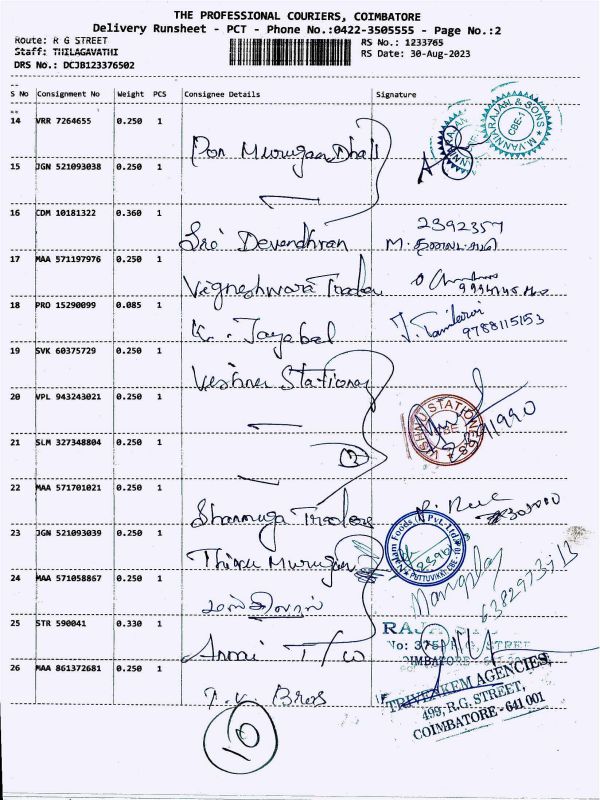 THE PROFESSIONAL COURIERS, COIMBATORE
Delivery Runsheet - PCT - Phone No.:0422-3505555 - Page No.:2
Route: R G STREET
RS No.: 1233765
Staff: THILAGAVATHI
RS Date: 30-Aug-2023
DRS No.: DCJB123376502
S No Consignment No Weight PCS Consignee Details Signature
14 VRR 7264655 0.250 1
M.VANNIARAJAN & SONS
CBE-1
Pon Murugan Dhall
15 JGN 521093038 0.250 1
16 CDM 10181322 0.360 1
2392357
Sri Devendhran M.
17 MAA 571197976 0.250 1
Vigneshwara Trader
18 PRO 15290099 0.085 1
K. Jayabal J. Tamilarvi
9788115153
19 SVK 60375729 0.250 1
Vishnu Stationary
20 VPL 943243021 0.250 1
VISHNU STATIONERS
CBE
91990
21 SLM 327348804 0.250 1
3
22 MAA 571701021 0.250 1
Shanmuga Traders
23 JGN 521093039 0.250 1
Thiru Murugan
Foods (P) Pvt. Ltd.
PUTTUVIKKI, CBE
24 MAA 571058867 0.250 1
6382973713
25 STR 590041 0.330 1
RAJA
No: 375 STREET
COIMBATORE
Annai T/W
26 MAA 861372681 0.250 1
T.V. Bros
TRIVENKEM AGENCIES
499, R.G. STREET,
COIMBATORE - 641 001
10